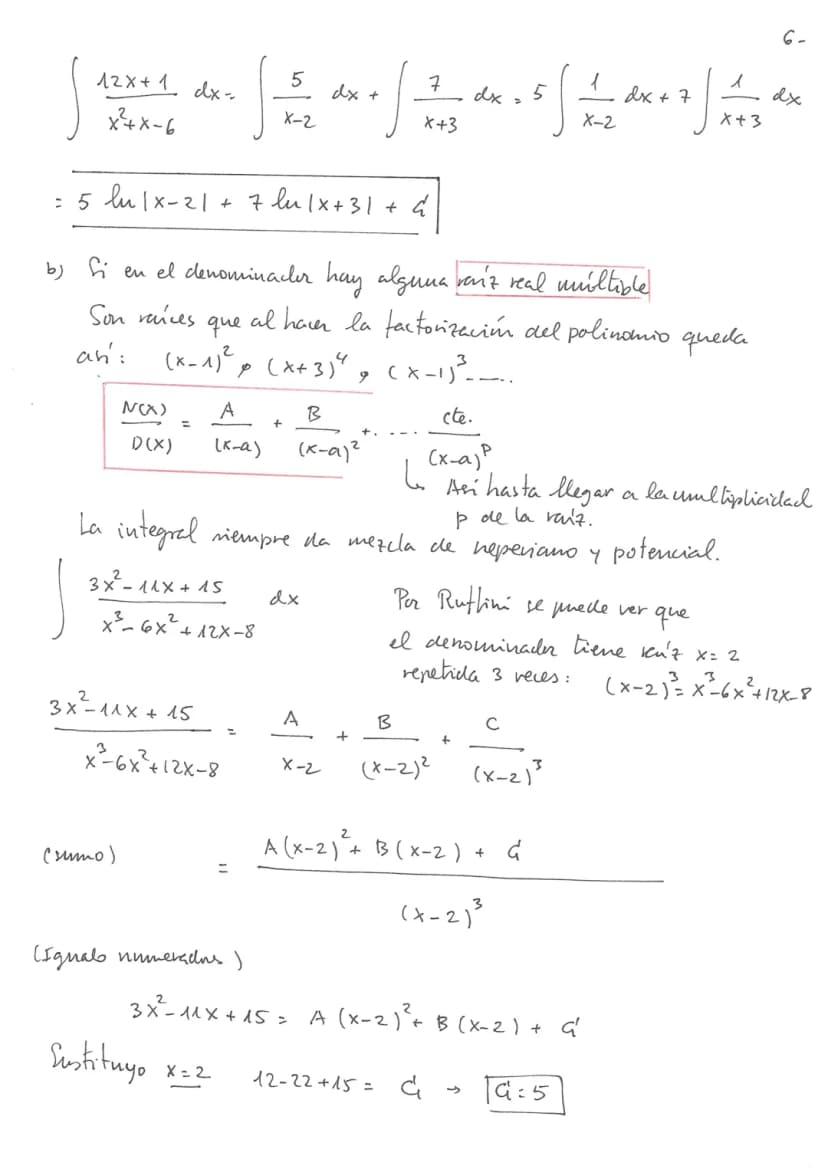 6-
∫ (12x+1)/(x²+x-6) dx = ∫ 5/(x-2) dx + ∫ 7/(x+3) dx = 5 ∫ 1/(x-2) dx + 7 ∫ 1/(x+3) dx
= 5 ln|x-2| + 7 ln|x+3| + C
b) Si en el denominador hay alguna raíz real múltiple
Son raíces que al hacer la factorización del polinomio queda
así: (x-1)², (x+3)⁴, (x-1)³.....
N(x)/D(x) = A/(x-a) + B/(x-a)² +..... cte./(x-a)^p
↳ Así hasta llegar a la multiplicidad
p de la raíz.
La integral siempre da mezcla de neperiano y potencial.
∫ (3x²-11x+15)/(x³-6x²+12x-8) dx
Por Ruffini se puede ver que
el denominador tiene raíz x=2
repetida 3 veces: (x-2)³=x³-6x²+12x-8
(3x²-11x+15)/(x³-6x²+12x-8) = A/(x-2) + B/(x-2)² + C/(x-2)³
(sumo) = (A(x-2)²+B(x-2)+C)/(x-2)³
(Igualo numeradores)
3x²-11x+15 = A(x-2)²+B(x-2)+C
Sustituyo x=2 12-22+15 = C → C=5